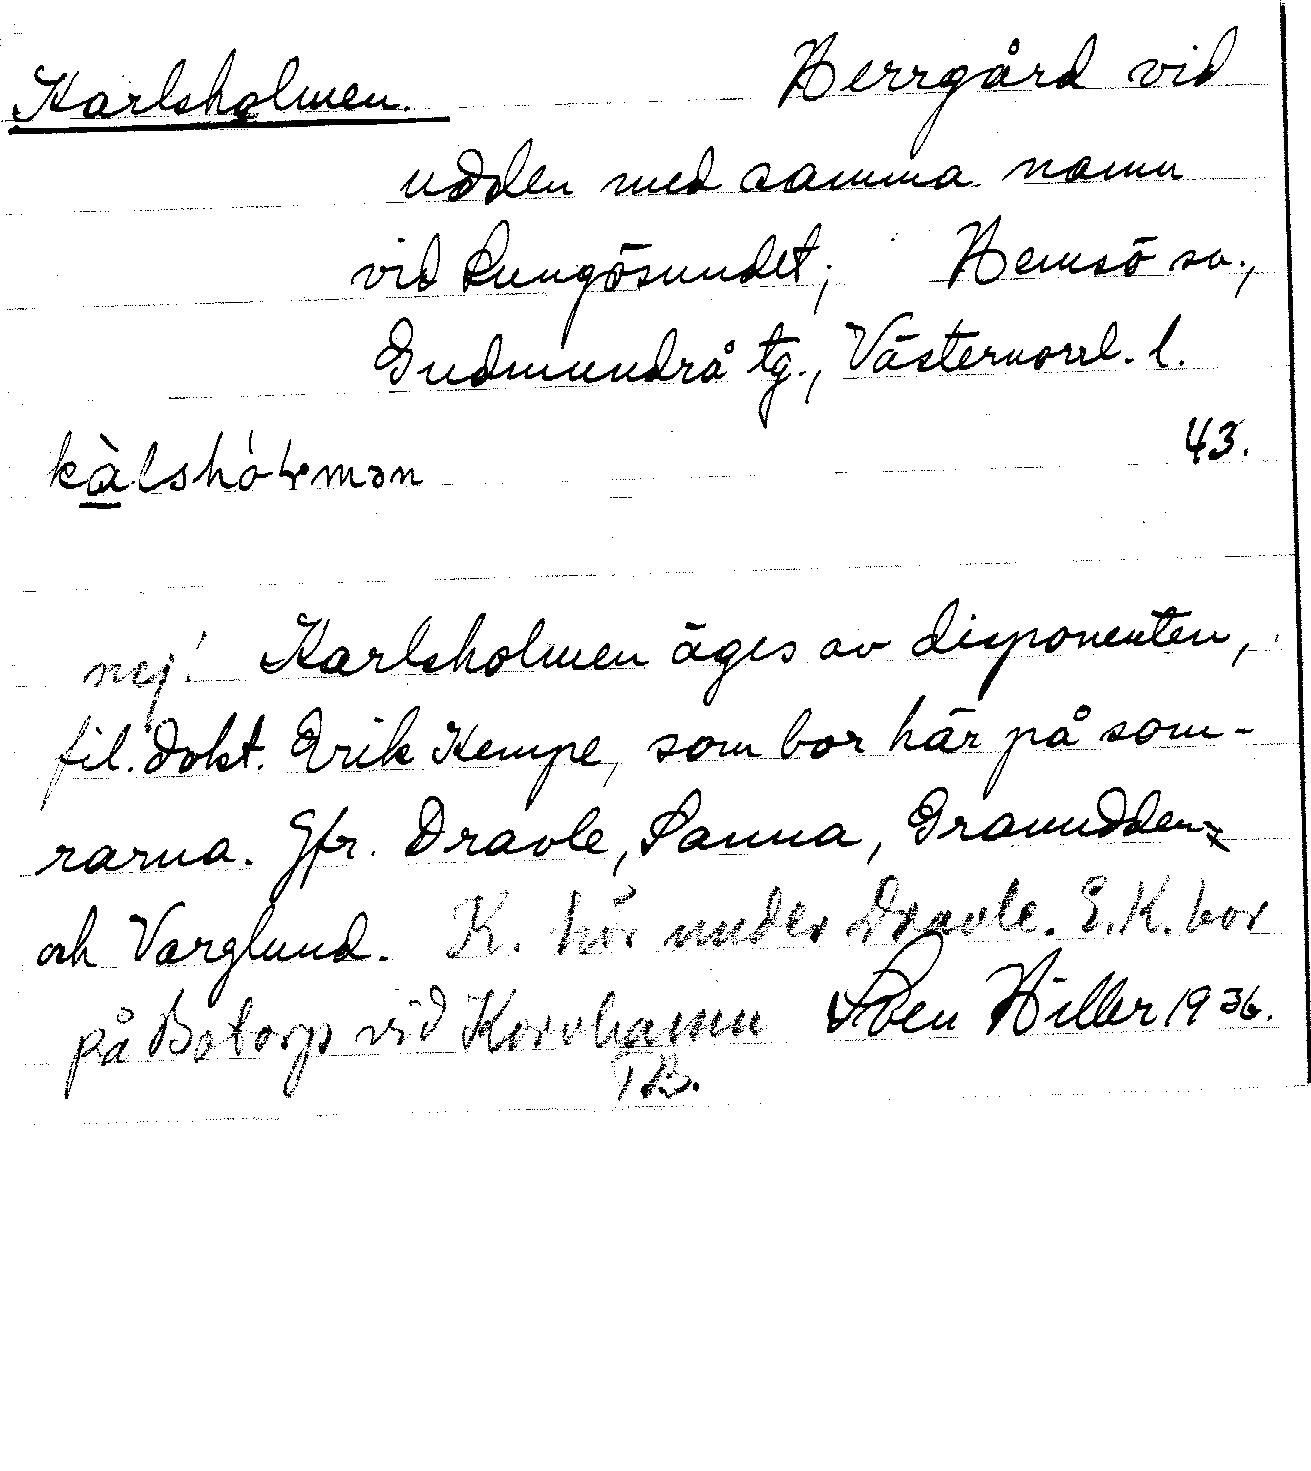 Karlsholmen. Herrgård vid
udden med samma namn
vid Lungösundet; Hemsö sn.,
Gudmundrå tg., Västernorrl. l.
kàlshóɫmən 43.
nej! Karlsholmen äges av disponenten,
fil. dokt. Erik Kempe, som bor här på som-
rarna. Jfr. Dravle, Sanna, Granudden
och Varglund. K. hör under Dravle. E.K. bor
på Botorp vid Korvhamn Sven Hiller 1936.